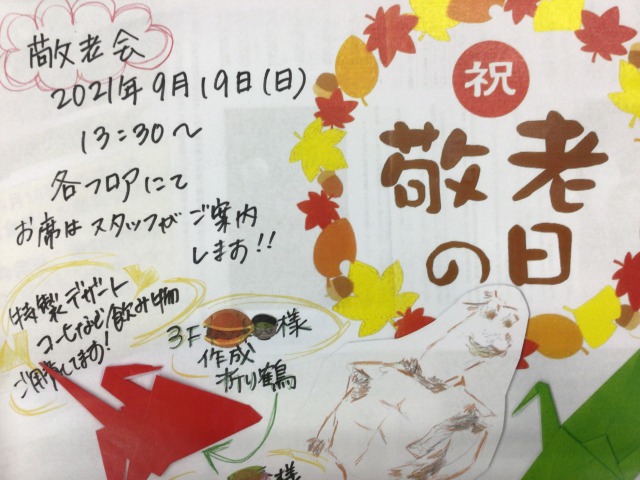 敬老会
2021年9月19日(日)
13:30〜
各フロアにて
お席はスタッフがご案内
します!!
特製デザート
コーヒーなど飲み物
ご用意してます!
3F 様
作成
折り鶴
様
祝
敬老
の日